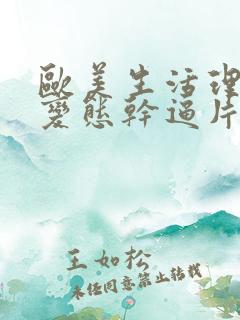 歐美生活理
變態幹逼片
王如松
未经同意禁止转载